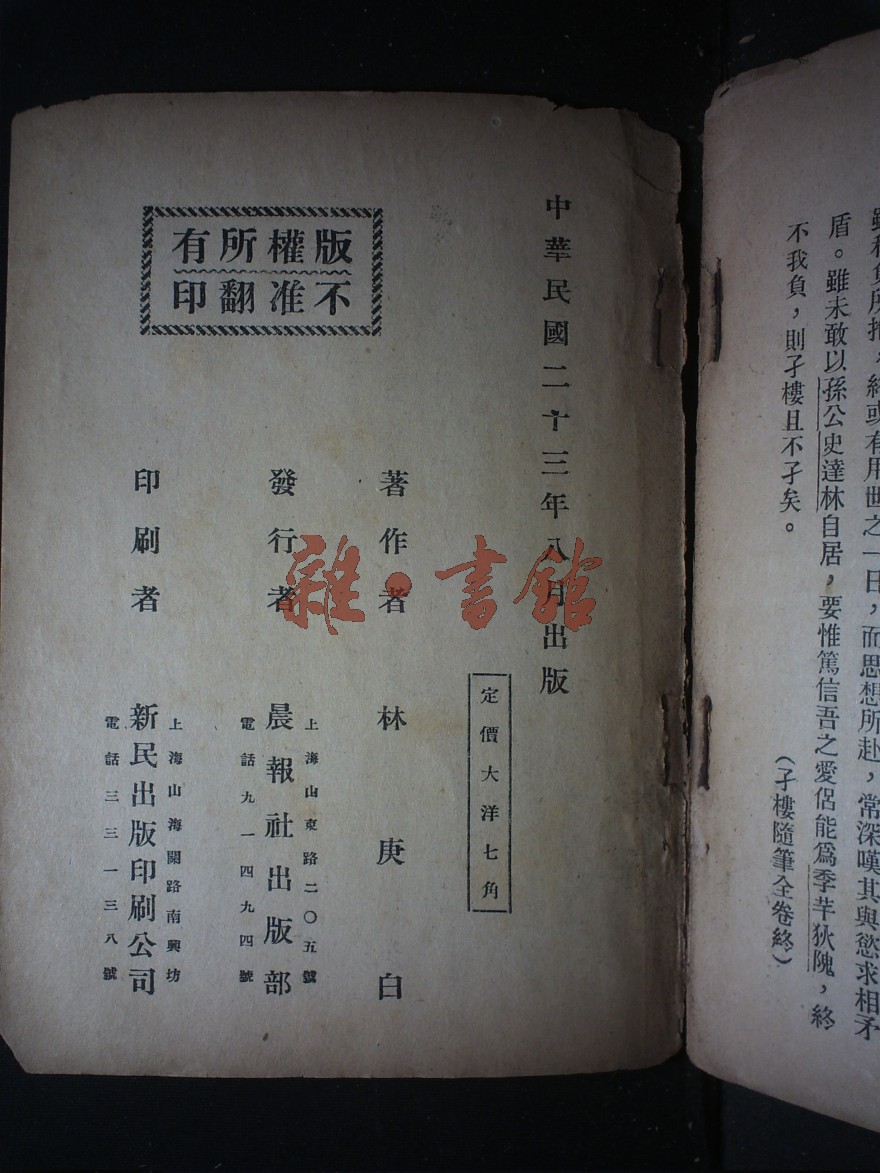 雖積負所抱，終或有用世之一日，而思想所赴，常深嘆其與慾求相矛
盾。雖未敢以孫公史達林自居，要惟篤信吾之愛侶能爲季芈狄隗，終
不我負，則孑樓且不孑矣。
（孑樓隨筆全卷終）
中華民國二十三年八月出版
定價大洋七角
著作者 林庚白
發行者 晨報社出版部
上海山東路二〇五號
電話九一四九四號
印刷者 新民出版印刷公司
上海山海關路南興坊
電話三三一三八號
版權所有
不准翻印
雜·書館